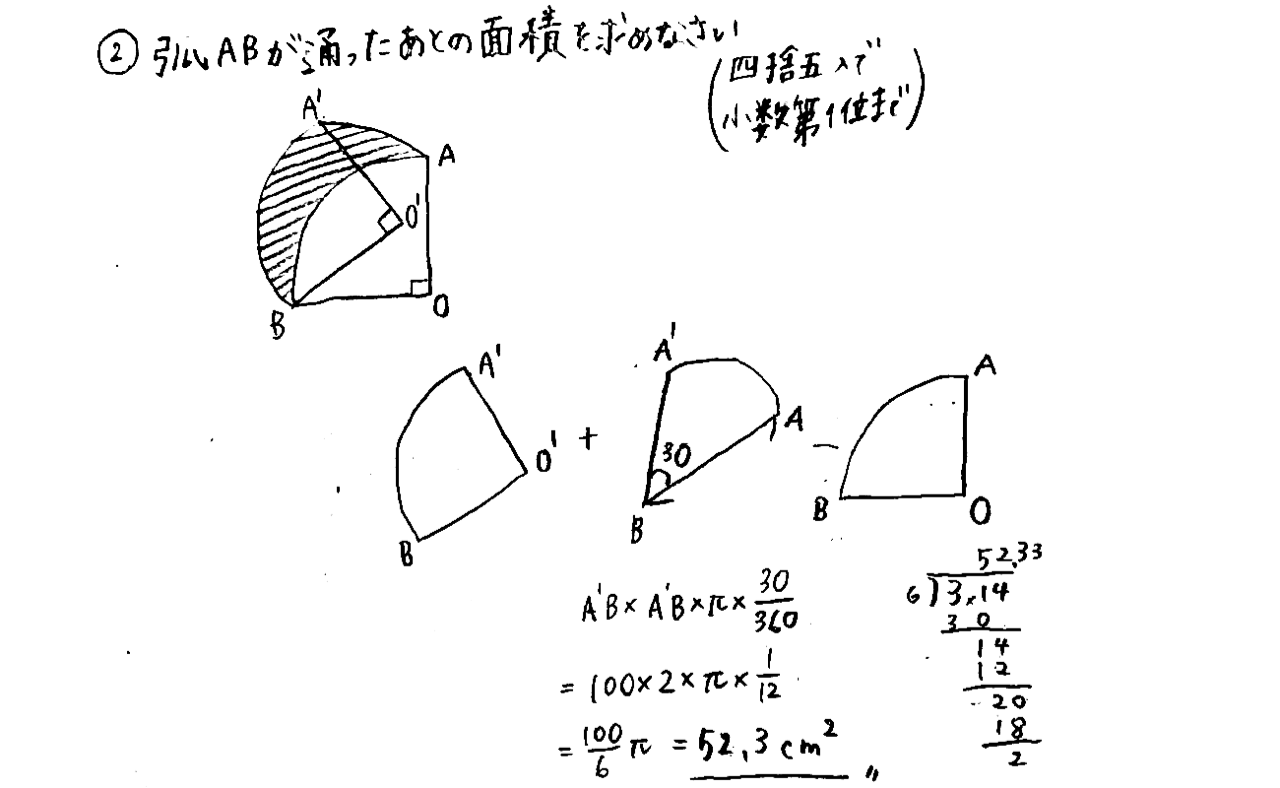 ② 弧ABが通ったあとの面積を求めなさい
(四捨五入で
小数第1位まで)
A'
A
O'
O
B
A'
O'
B
+
A'
30
A
B
−
A
B
O
A'B×A'B×π×30/360
=100×2×π×1/12
=100/6π=52.3cm²〃
52.33
6)3.14
30
14
12
20
18
2